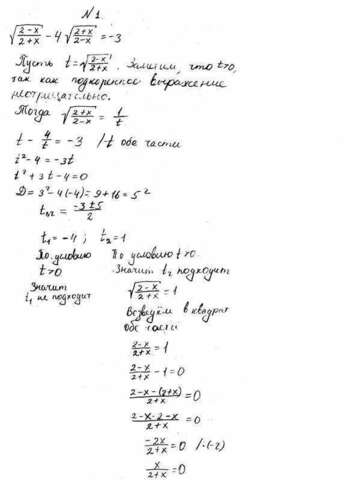 №1
√((2-x)/(2+x)) - 4 √((2+x)/(2-x)) = -3
Пусть t = √((2-x)/(2+x)). Заметим, что t>0,
так как подкоренное выражение
неотрицательно.
Тогда √((2+x)/(2-x)) = 1/t
t - 4/t = -3 /·t обе части
t² - 4 = -3t
t² + 3t - 4 = 0
D = 3² - 4·(-4) = 9 + 16 = 5²
t₁,₂ = (-3±5)/2
t₁ = -4 ; t₂ = 1
По условию По условию t>0.
t>0 Значит t₂ подходит
Значит
t₁ не подходит
√((2-x)/(2+x)) = 1
Возведём в квадрат
обе части
(2-x)/(2+x) = 1
(2-x)/(2+x) - 1 = 0
(2-x-(2+x))/(2+x) = 0
(2-x-2-x)/(2+x) = 0
-2x/(2+x) = 0 /:(-2)
x/(2+x) = 0